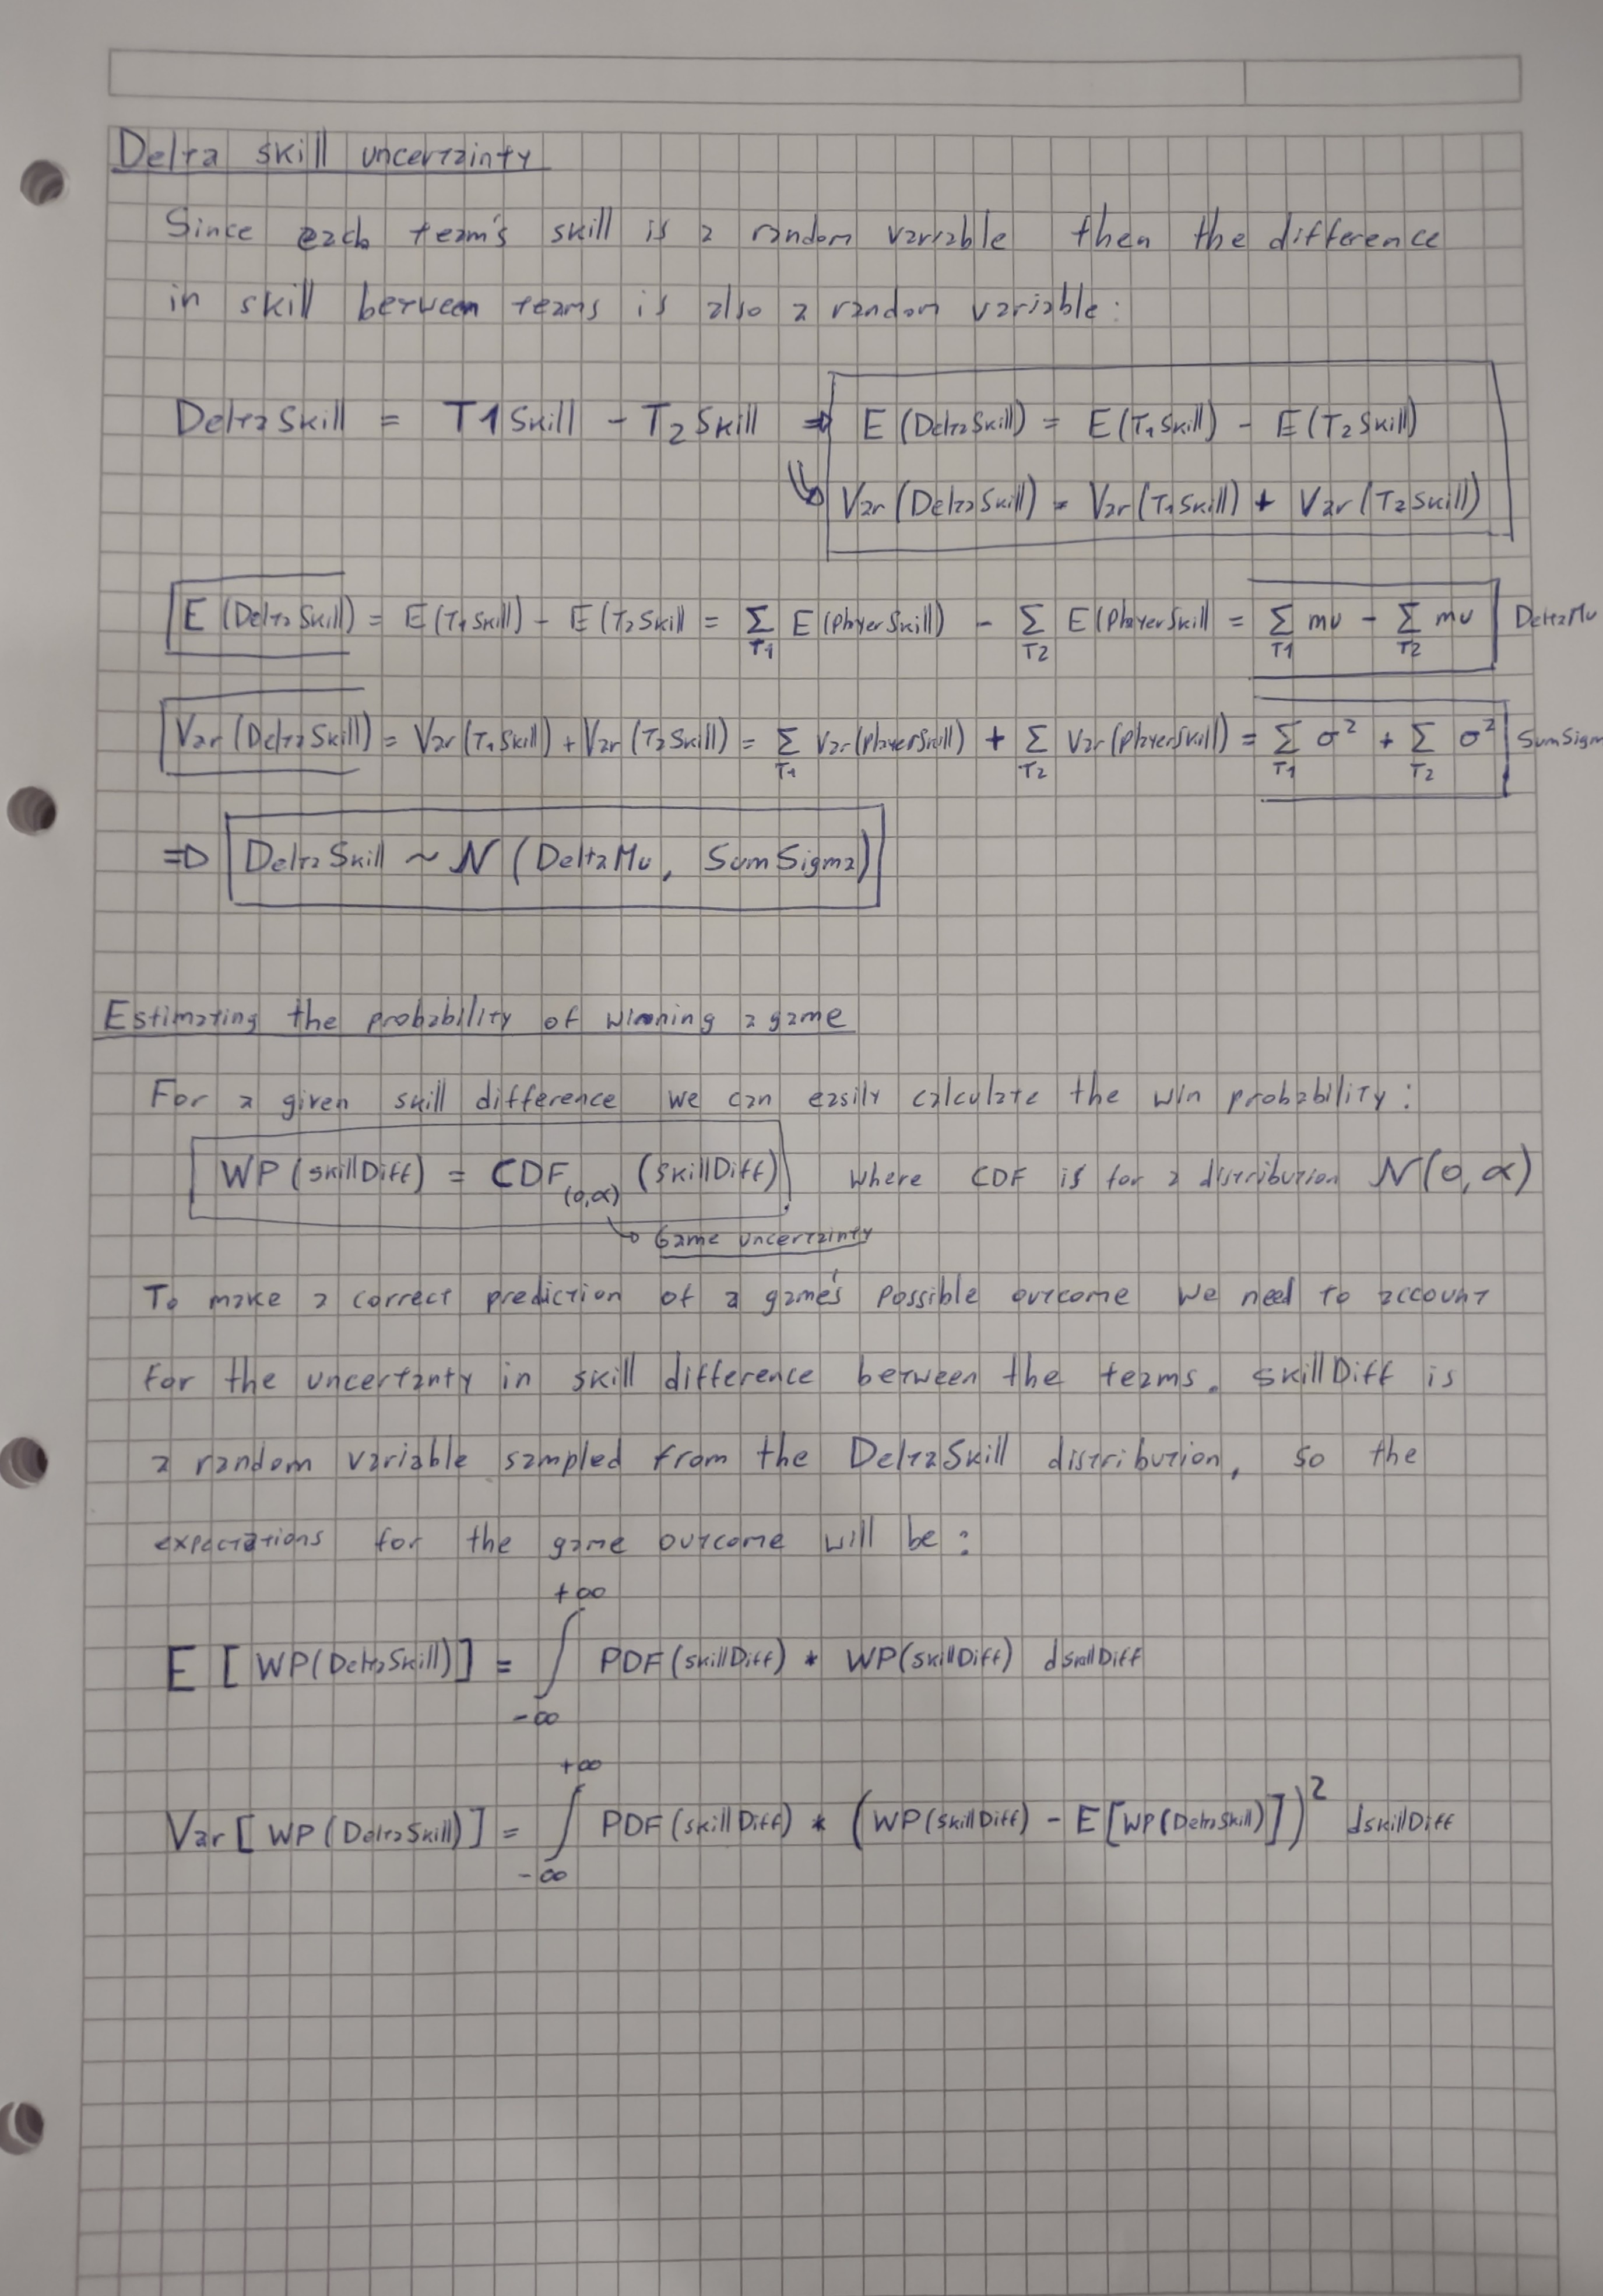 Delta skill uncertainty
Since each team's skill is a random variable then the difference
in skill between teams is also a random variable:
DeltaSkill = T1Skill - T2Skill => E(DeltaSkill) = E(T1Skill) - E(T2Skill)
Var(DeltaSkill) = Var(T1Skill) + Var(T2Skill)
E(DeltaSkill) = E(T1Skill) - E(T2Skill = Σ_T1 E(PlayerSkill) - Σ_T2 E(PlayerSkill = Σ_T1 mu - Σ_T2 mu DeltaMu
Var(DeltaSkill) = Var(T1Skill) + Var(T2Skill) = Σ_T1 Var(PlayerSkill) + Σ_T2 Var(PlayerSkill) = Σ_T1 σ² + Σ_T2 σ² SumSigm
=> DeltaSkill ~ N(DeltaMu, SumSigma)
Estimating the probability of winning a game
For a given skill difference we can easily calculate the win probability:
WP(skillDiff) = CDF_(0,α) (skillDiff) where CDF is for a distribution N(0,α)
Game uncertainty
To make a correct prediction of a game's possible outcome we need to account
for the uncertanty in skill difference between the teams. skillDiff is
a random variable sampled from the DeltaSkill distribution, so the
expectations for the game outcome will be:
E[WP(DeltaSkill)] = ∫_-∞^+∞ PDF(skillDiff) * WP(skillDiff) dskillDiff
Var[WP(DeltaSkill)] = ∫_-∞^+∞ PDF(skillDiff) * (WP(skillDiff) - E[WP(DeltaSkill)])² dskillDiff